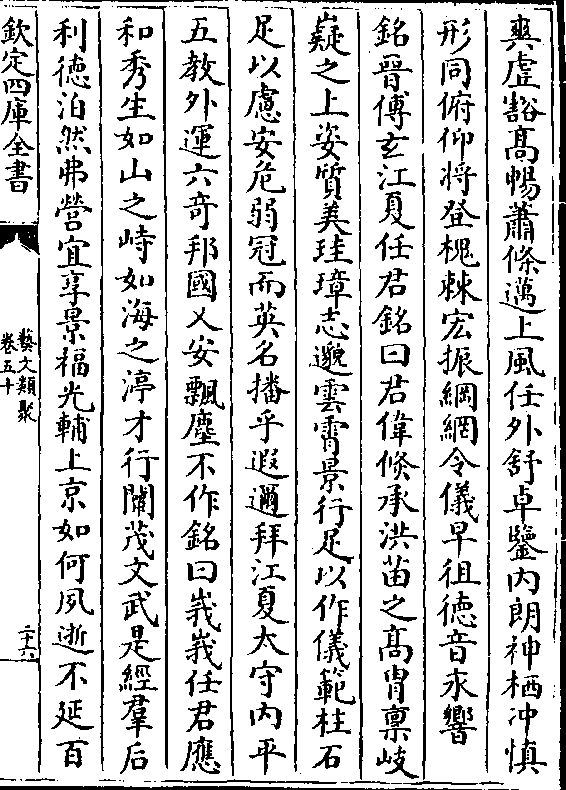 爽虛豁高暢蕭條邁上風任外舒卓鑒内朗神栖冲慎
形同俯仰将登槐棘宏振綱網令儀早徂徳音永響
銘晉傅玄江夏任君銘曰君偉倏承洪苗之高胄禀岐
嶷之上姿質美珪璋志邈雲霄景行足以作儀範柱石
足以慮安危弱冠而英名播乎遐邇拜江夏太守内平
五教外運六奇邦國乂安飄塵不作銘曰峩峩任君應
和秀生如山之峙如海之渟才行闡茂文武是經羣后
利徳泊然弗營宜享景福光輔上京如何夙逝不延百
欽定四庫全書
藝文類聚
卷五十
二十六